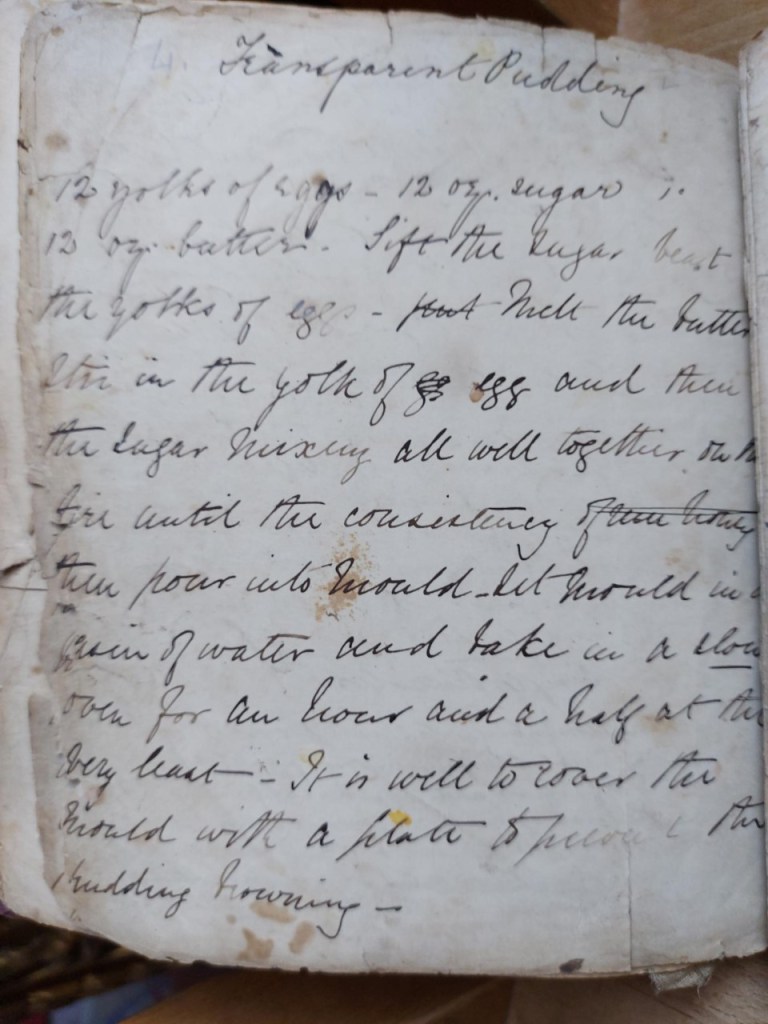 Transparent Pudding
12 yolks of eggs - 12 oz. sugar
12 oz. butter. Sift the sugar beat
the yolks of eggs - put Melt the butter
Stir in the yolk of egg and then
the sugar mixing all well together on the
fire until the consistency of honey
then pour into mould - Set mould in a
basin of water and bake in a slow
oven for an hour and a half at the
very least - It is well to cover the
mould with a plate to prevent the
pudding browning -